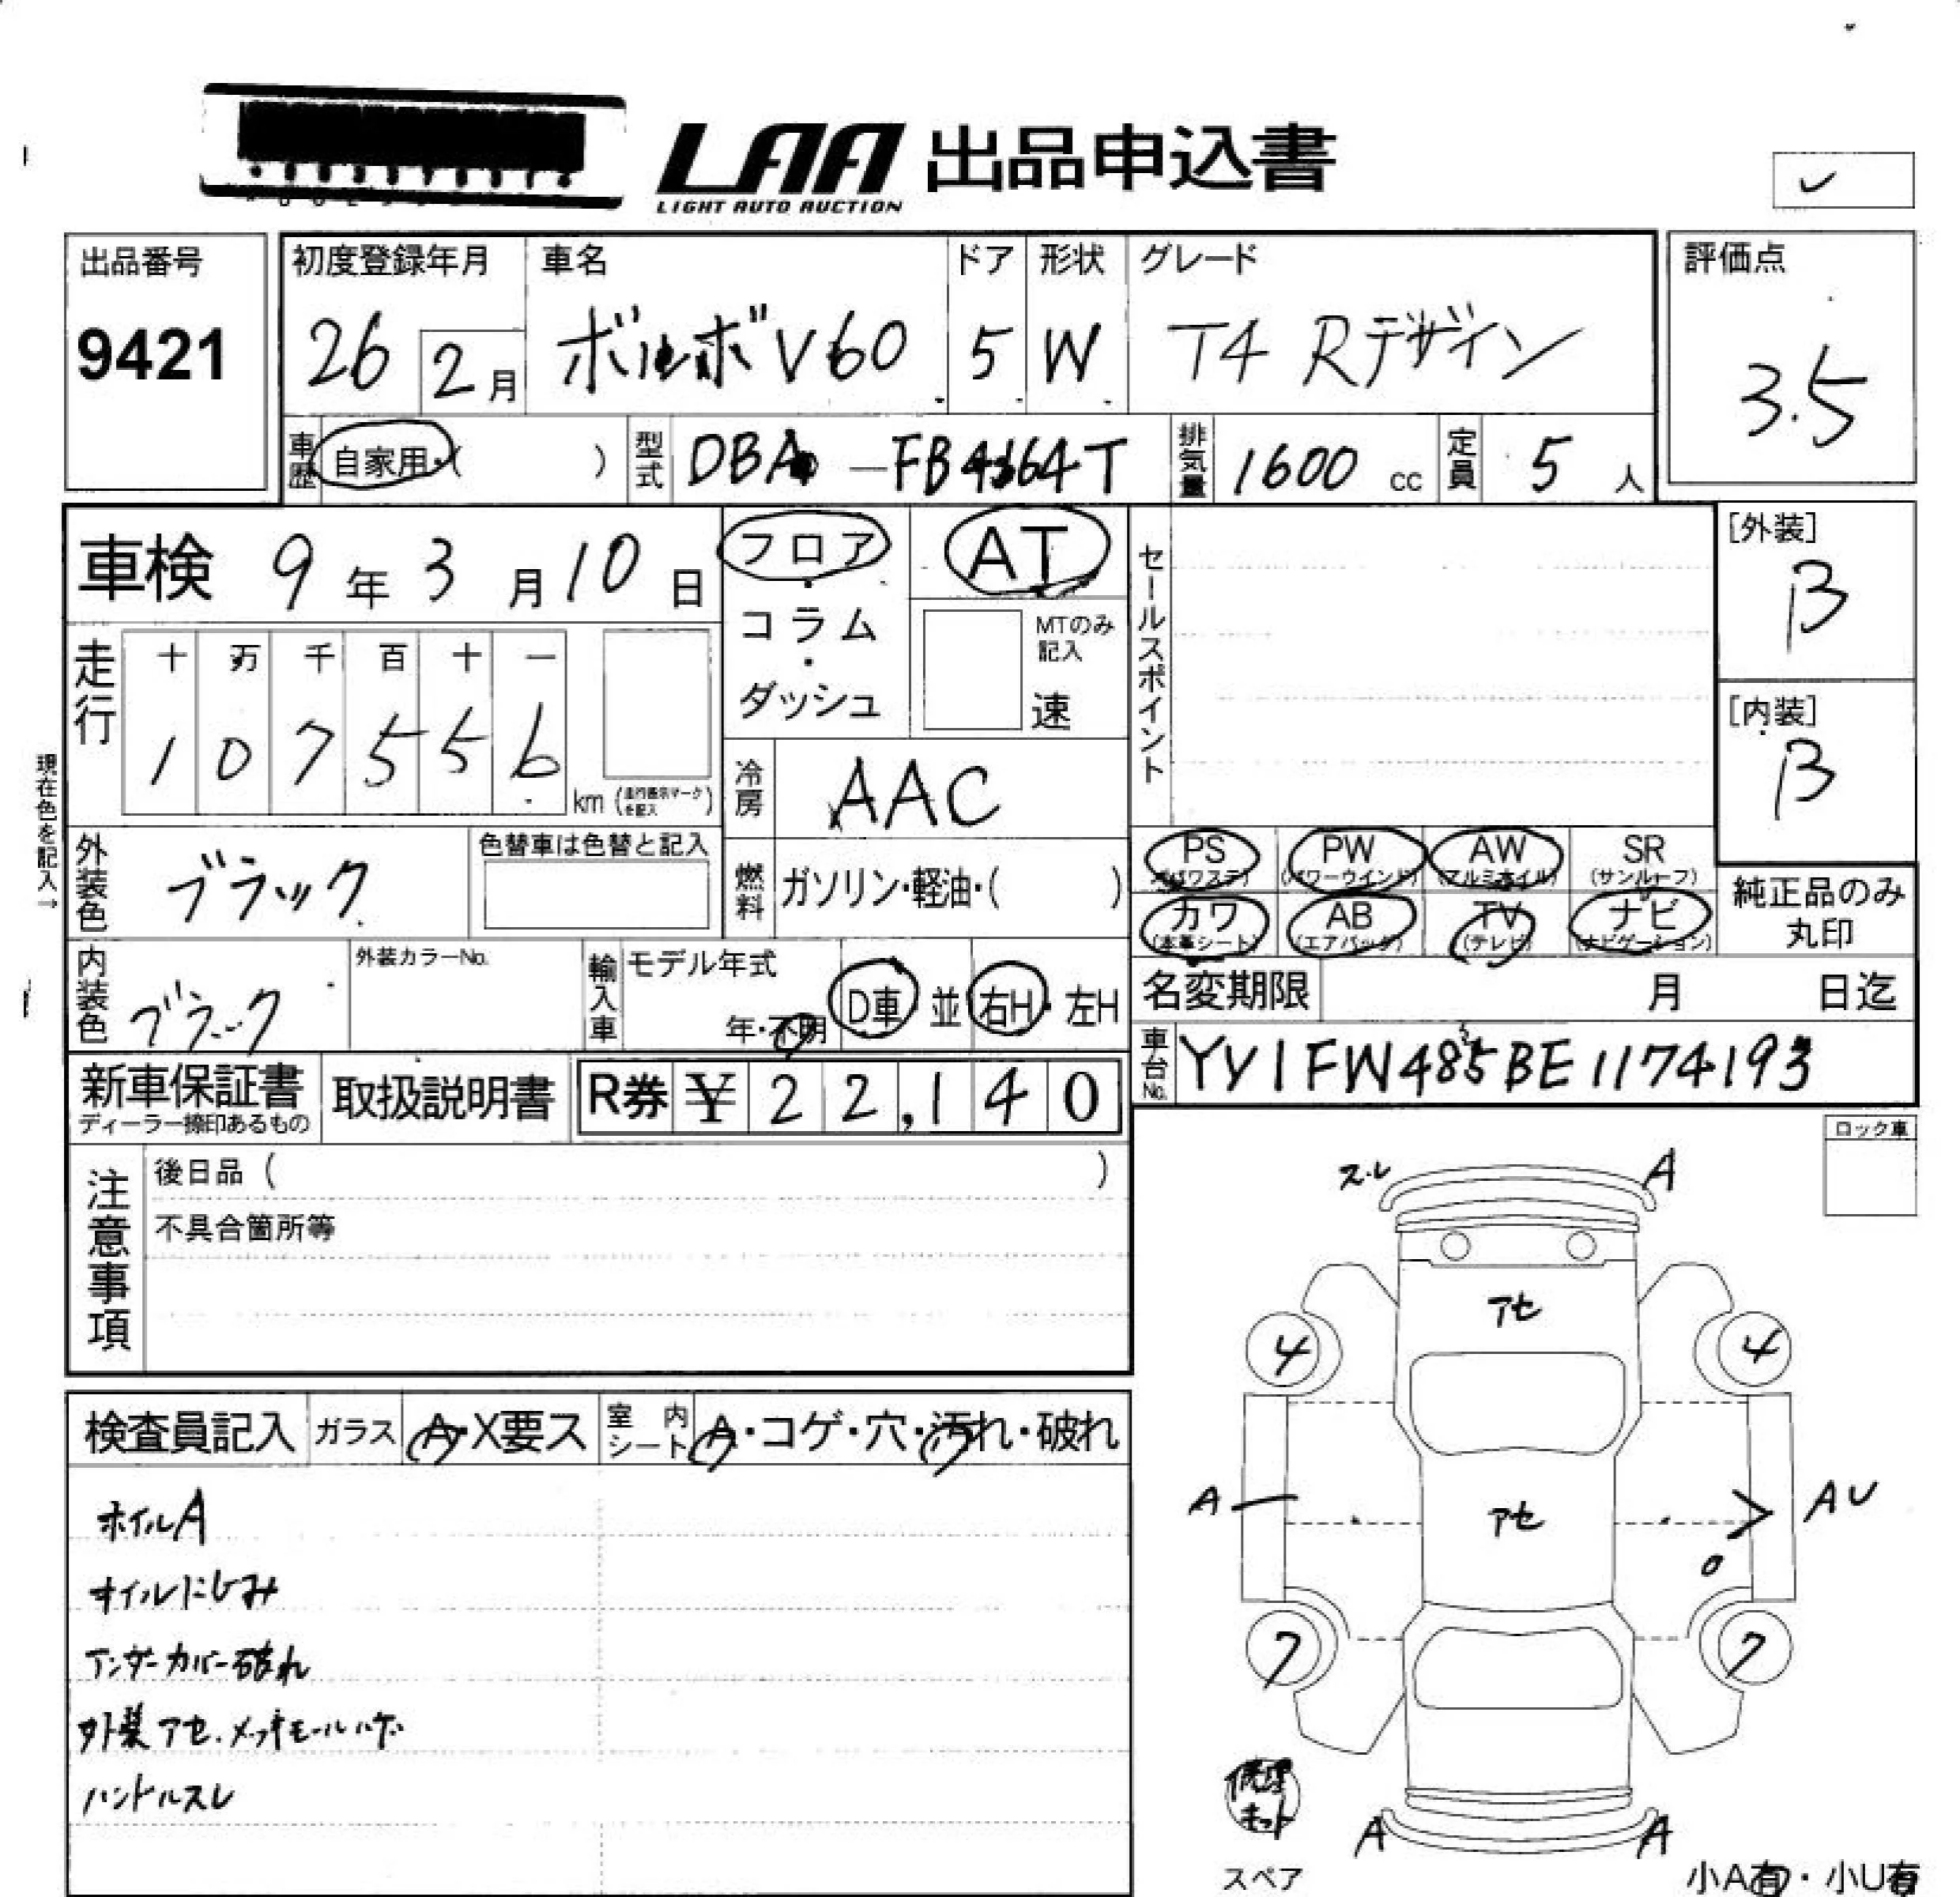 LAA 出品申込書
LIGHT AUTO AUCTION
出品番号 初度登録年月 車名 ドア 形状 グレード 評価点
9421 26 2月 ボルボV60 5 W T4 Rデザイン 3.5
車歴 自家用・( ) 型式 DBA -FB4164T 排気量 1600 cc 定員 5 人
車検 9年3月10日 フロア・コラム・ダッシュ AT
MTのみ記入 速
セールスポイント
[外装] B
[内装] B
走行 十 万 千 百 十 一
1 0 7 5 5 6 km (走行表示マークを記入)
現在色を記入→
冷房 AAC
外装色 ブラック 色替車は色替と記入
燃料 ガソリン・軽油・( )
PS (パワステ) PW (パワーウインド) AW (アルミホイル) SR (サンルーフ)
カワ (本革シート) AB (エアバッグ) TV (テレビ) ナビ (ナビゲーション)
純正品のみ丸印
内装色 ブラック 外装カラーNo. 輸入車 モデル年式 年・不明 D車 並 右H・左H
名変期限 月 日迄
車台No. YV1FW485BE1174193
新車保証書 取扱説明書 R券 ¥22,140
ディーラー捺印あるもの
注意事項
後日品 ( )
不具合箇所等
ロック車
スレ A
アセ
4 4
A アセ AU
7 7
修理キット
スペア
A A
小A有・小U有
検査員記入 ガラス A・X要ス 室内シート A・コゲ・穴・汚れ・破れ
ホイルA
オイルにじみ
アンダーカバー破れ
外装アセ.メッキモールハゲ
ハンドルスレ